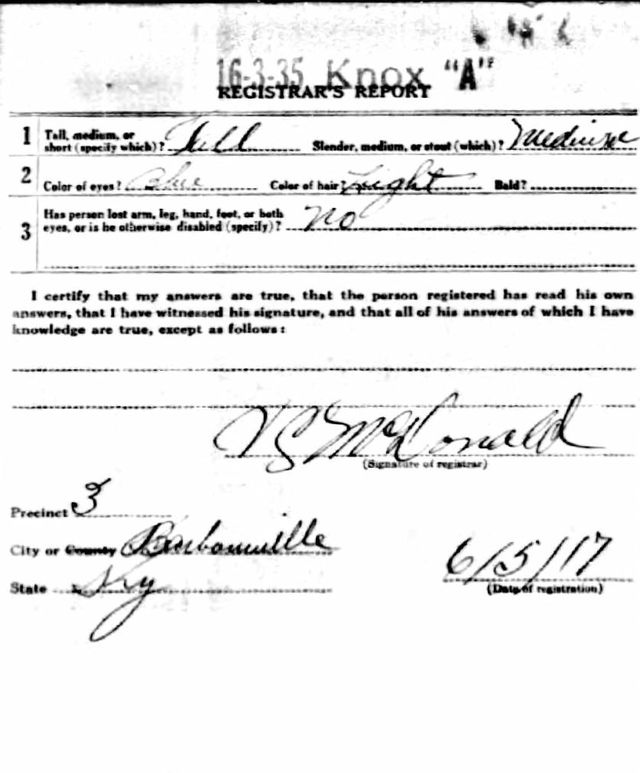 16-3-35 Knox "A"
REGISTRAR'S REPORT
1 Tall, medium, or short (specify which)? Tall Slender, medium, or stout (which)? Medium
2 Color of eyes? Blue Color of hair? Light Bald?
3 Has person lost arm, leg, hand, foot, or both
eyes, or is he otherwise disabled (specify)? No
I certify that my answers are true, that the person registered has read his own
answers, that I have witnessed his signature, and that all of his answers of which I have
knowledge are true, except as follows:
McDonald
(Signature of registrar)
Precinct 3
City or County Barbourville
State Ky
6/5/17
(Date of registration)